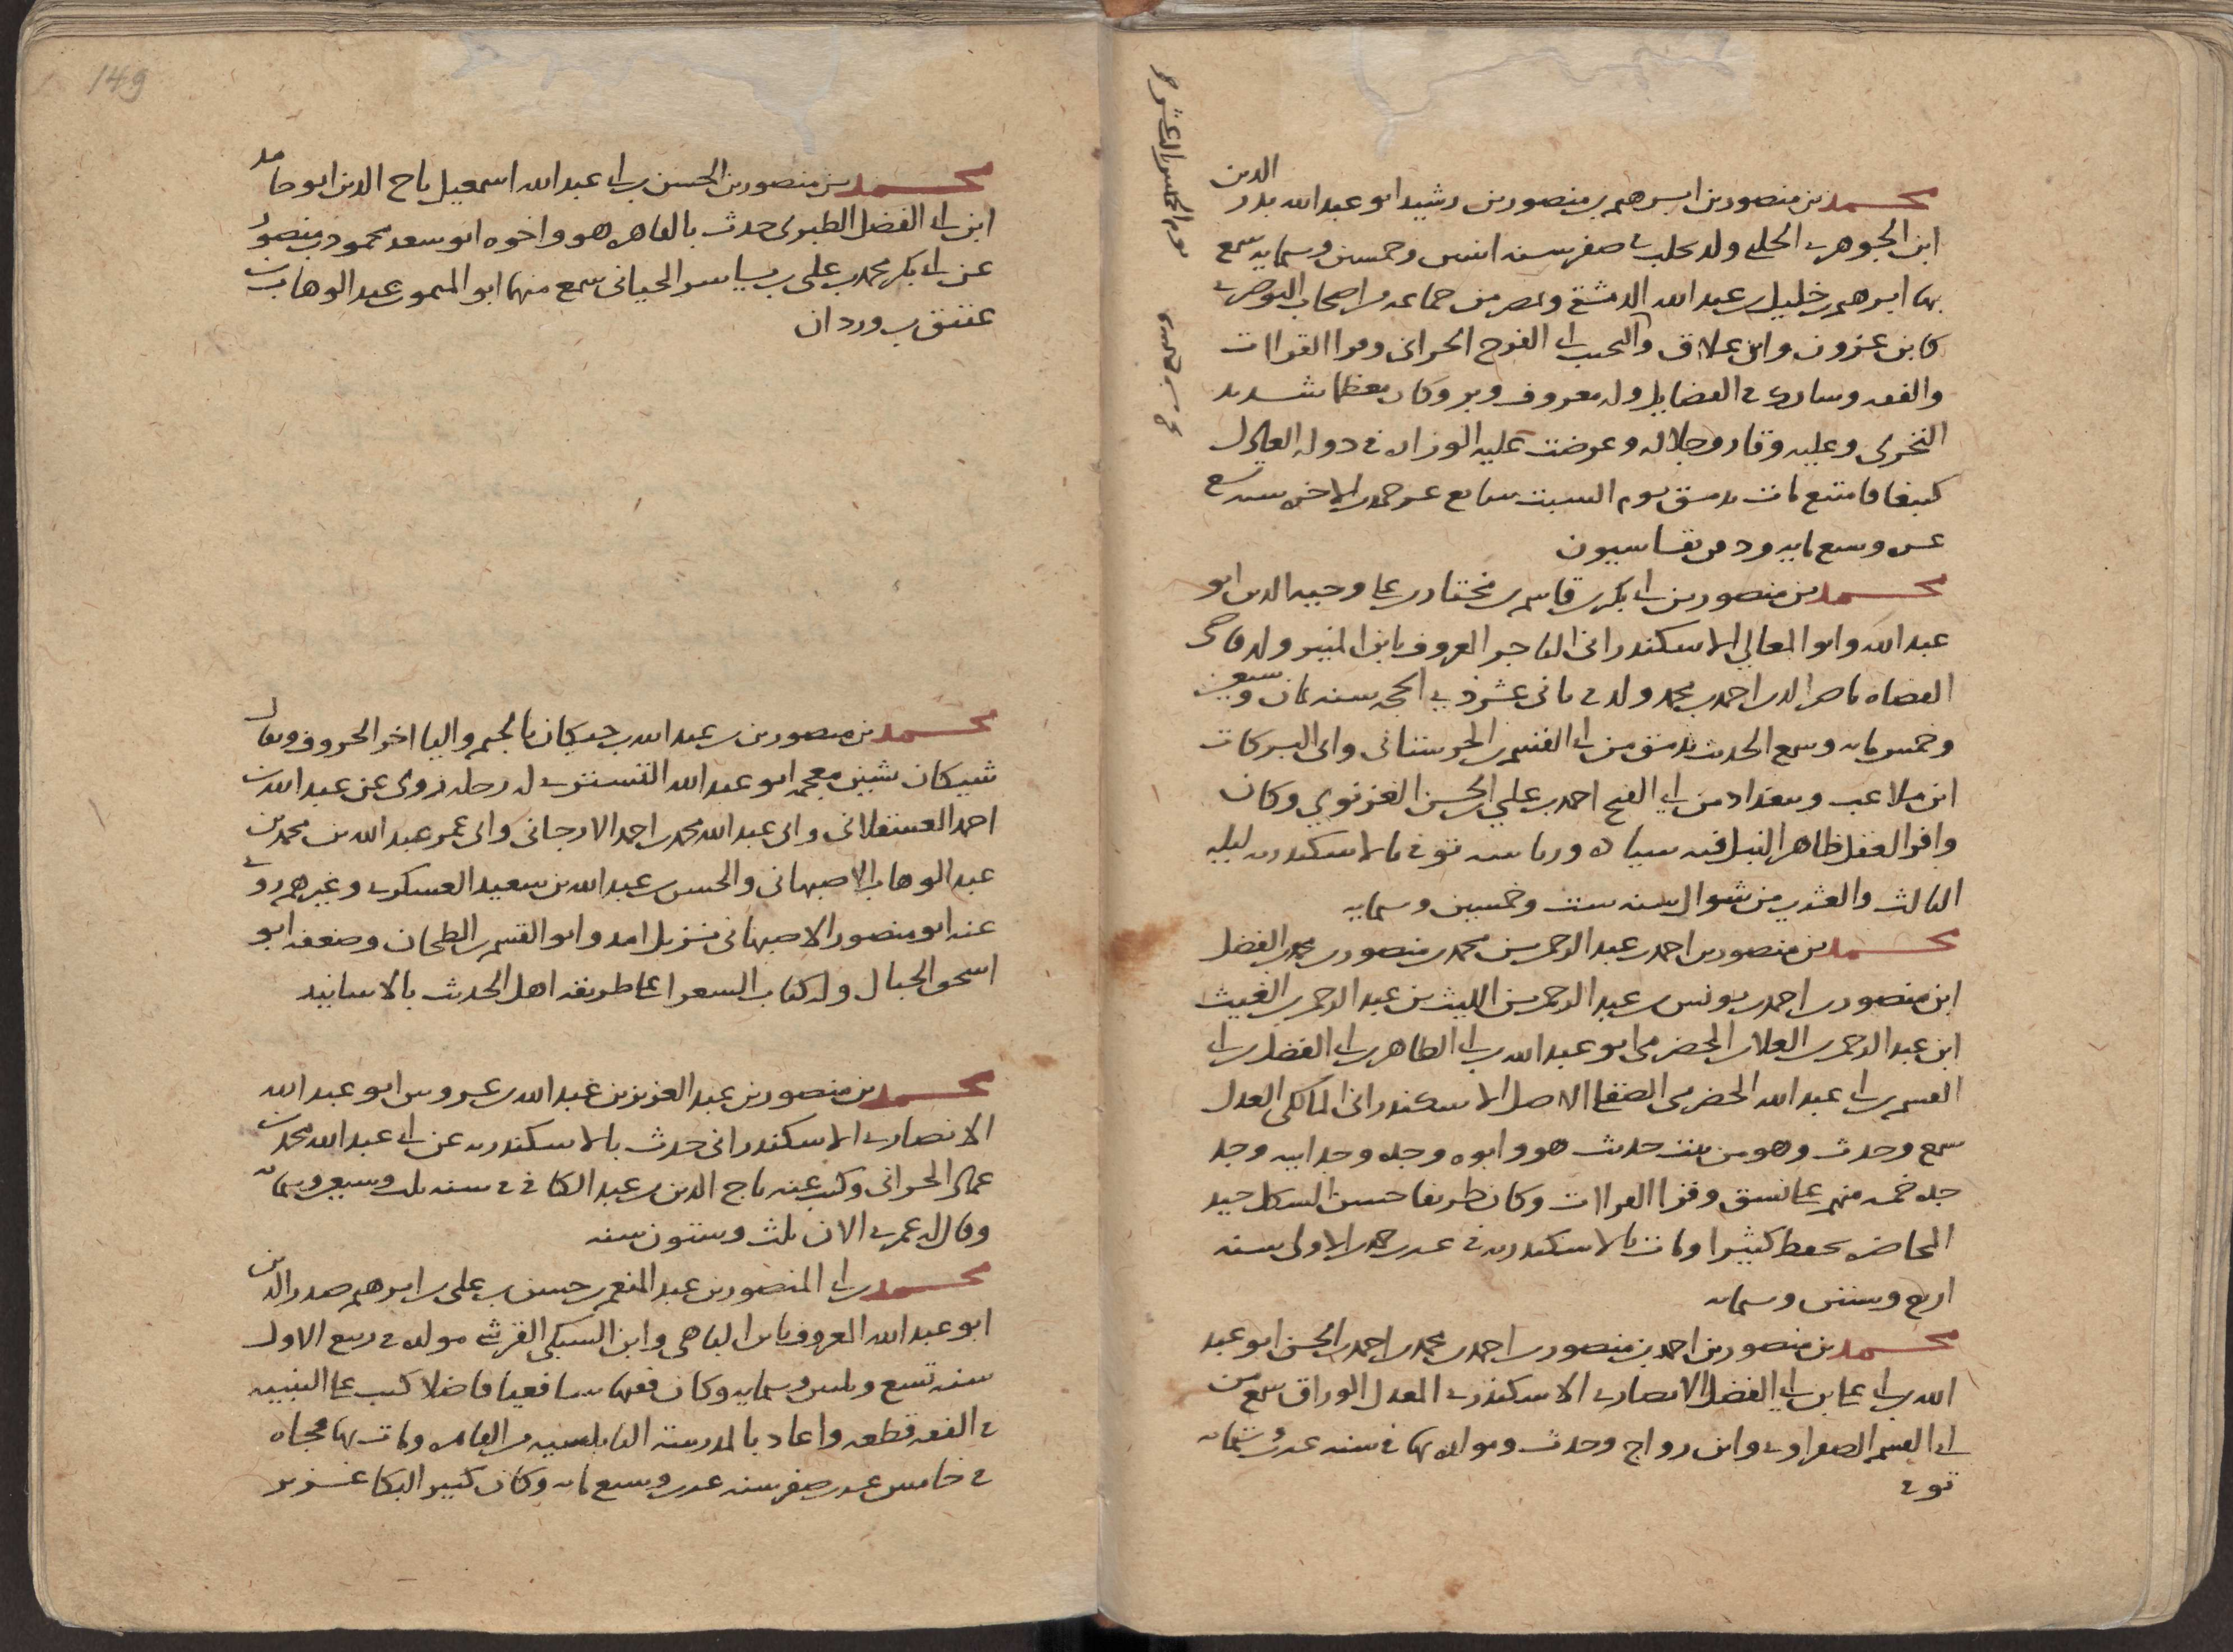 محمد بن منصور بن ابرهيم بن منصور بن رشيد ابو عبد الله بدر الدين
ابن الجوهري الحلبي ولد بحلب في صفر سنه اثنين وخمسين وستمايه سمع
بها ابرهيم بن خليل بن عبد الله الدمشقي وبمصر من جماعه من اصحاب البوصيري
كابن عزون وابن علاق والنجيب ابي الفرج الحراني وقرا القراات
والفقه وشارك في الفضايل وله معروف وبر وكان معظما شديد
التحري وعليه وقار وجلاله وعرضت عليه الوزاره في دوله العادل
كتبغا فامتنع مات بدمشق يوم السبت سابع عشر جمدى الاخره سنه تسع
عشره وسبع مايه ودفن بقاسيون
محمد بن منصور بن ابي بكر بن قاسم بن مختار بن علي وجيه الدين ابو
عبد الله وابو المعالي الاسكندراني التاجر المعروف بابن المنير ولد قاضي
القضاه ناصر الدين احمد بن محمد ولد في ثاني عشر ذي الحجه سنه ثمان وسبعين
وخمس مايه وسمع الحديث بدمشق من ابي القسم بن الحرستاني وابي البركات
ابن ملاعب وببغداد من ابي الفتح احمد بن علي بن الحسن الغزنوي وكان
وافر العقل ظاهر النبل فيه سياده ورياسه توفي بالاسكندريه ليله
الثالث والعشرين من شوال سنه ست وخمسين وستمايه
محمد بن منصور بن احمد بن عبد الرحمن بن محمد بن منصور بن محمد بن الفضل
ابن منصور بن احمد بن يونس بن عبد الرحمن بن الليث بن عبد الرحمن بن المغيث
ابن عبد الرحمن بن العلا بن الحضرمي ابو عبد الله بن ابي الطاهر بن ابي الفضل بن ابي
القسم بن ابي عبد الله الحضرمي الصقلي الاصل الاسكندراني المالكي العدل
سمع وحدث وهو من بيت حديث هو وابوه وجده وجد ابيه وجد
جده خمسه منهم على نسق وقرا القراات وكان ظريفا حسن الشكل جيد
المحاضره يحفظ كثيرا ومات بالاسكندريه في عشر جمدى الاولى سنه
اربع وستين وستمايه
محمد بن منصور بن احمد بن منصور بن احمد بن محمد بن احمد بن الحسن ابو عبد
الله بن ابي علي بن ابي الفضل الانصاري الاسكندري المعدل الوراق سمع من
ابي القسم الصفراوي وابن رواج وحدث ومولده بها في سنه عشر وستمايه
توفي
محمد بن منصور بن الحسن بن ابي عبد الله اسمعيل تاج الدين ابو حامد
ابن ابي الفضل الطبري حدث بالقاهره هو واخوه ابو سعد محمود بن منصور
عن ابي بكر محمد بن علي بن ياسر الجياني سمع منهما ابو الميمون عبد الوهاب بن
عتيق بن وردان
محمد بن منصور بن عبد الله بن جيكان بالجيم واليا اخر الحروف ويقال
شيكان بشين معجمه ابو عبد الله التستري له رحله روى عن عبد الله بن
احمد العسقلاني وابي عبد الله محمد بن احمد الارجاني وابي عمر عبد الله بن محمد بن
عبد الوهاب الاصبهاني والحسن بن عبد الله بن سعيد العسكري وغيرهم روى
عنه ابو منصور الاصبهاني نزيل امد وابو القسم بن الطحان وضعفه ابو
اسحق الحبال وله كتاب الشعرا على طريقه اهل الحديث بالاسانيد
محمد بن منصور بن عبد العزيز بن عبد الله بن عبروس ابو عبد الله
الانصاري الاسكندراني حدث بالاسكندريه عن ابي عبد الله محمد بن
عماد الحراني وكتب عنه تاج الدين بن عبد الكافي في سنه ثلث وسبعين وستمايه
وقال له عمري الان ثلث وستون سنه
محمد بن ابي المنصور بن عبد المنعم بن حسن بن علي بن ابرهيم صدر الدين
ابو عبد الله المعروف بابن الباهي وابن السبكي القرشي مولده في ربيع الاول
سنه تسع وثلثين وستمايه وكان فقيها شافعيا فاضلا كتب على التنبيه
في الفقه قطعه واعاد بالمدرسه النابلسيه من القاهره ومات بها فجاه
في خامس عشر صفر سنه عشر وسبع مايه وكان كثير البكا غزير
149